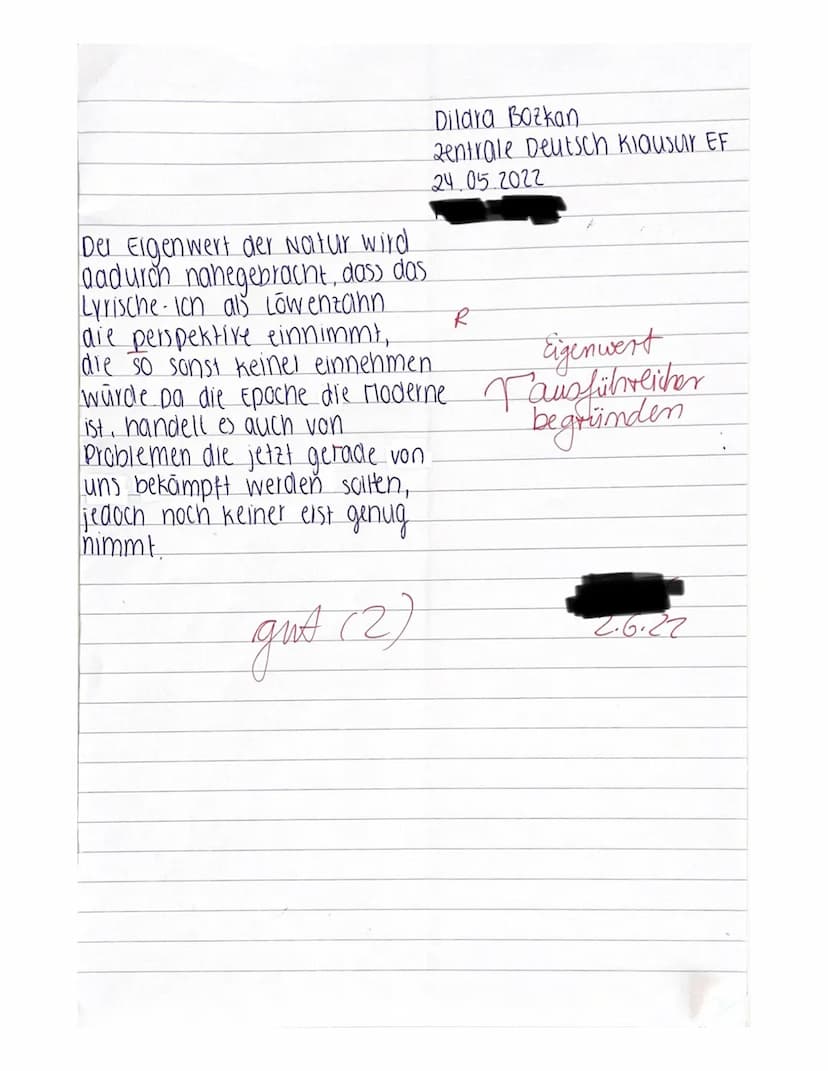 Dildra Bozkan
Zentrale Deutsch Klausur EF
24.05.2022
Der Eigenwert der Natur wird
dadurch nahegebracht, dass das
Lyrische-Ich als Löwenzahn
die perspektive einnimmt,
R
die so sonst keiner einnehmen
würde Da die Epoche die Moderne
ist, handelt es auch von
Problemen die jetzt gerade von
uns bekämpft werden sollten,
jedoch noch keiner erst genug
nimmt.
Eigenwert
ausführlicher
begründen
gut (2)
2.6.22